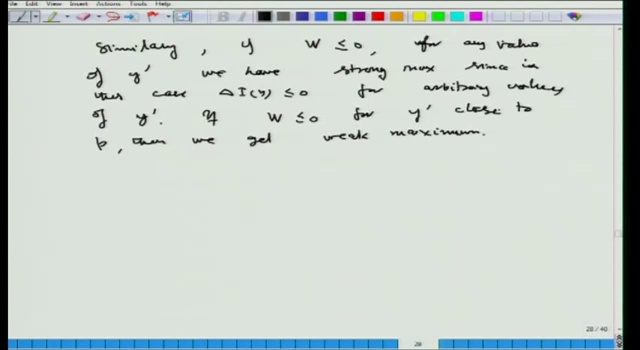 File View Insert Actions Tools Help
Similarly, if W ≤ 0, for any value
of y' we have strong max since in
this case ΔI(y) ≤ 0 for arbitrary values
of y'. If W ≤ 0 for y' close to
p, then we get weak maximum.
28 / 40
28